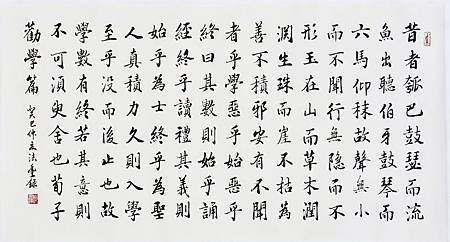 昔者瓠巴鼓瑟而流
魚出聽伯牙鼓琴而
六馬仰秣故聲無小
而不聞行無隱而不
形玉在山而草木潤
淵生珠而崖不枯為
善不積邪安有不聞
者乎學惡乎始惡乎
終曰其數則始乎誦
經終乎讀禮其義則
始乎為士終乎為聖
人真積力久則入學
至乎沒而後止也故
學數有終若其意則
不可須臾舍也荀子
勸學篇 癸巳仲夏法